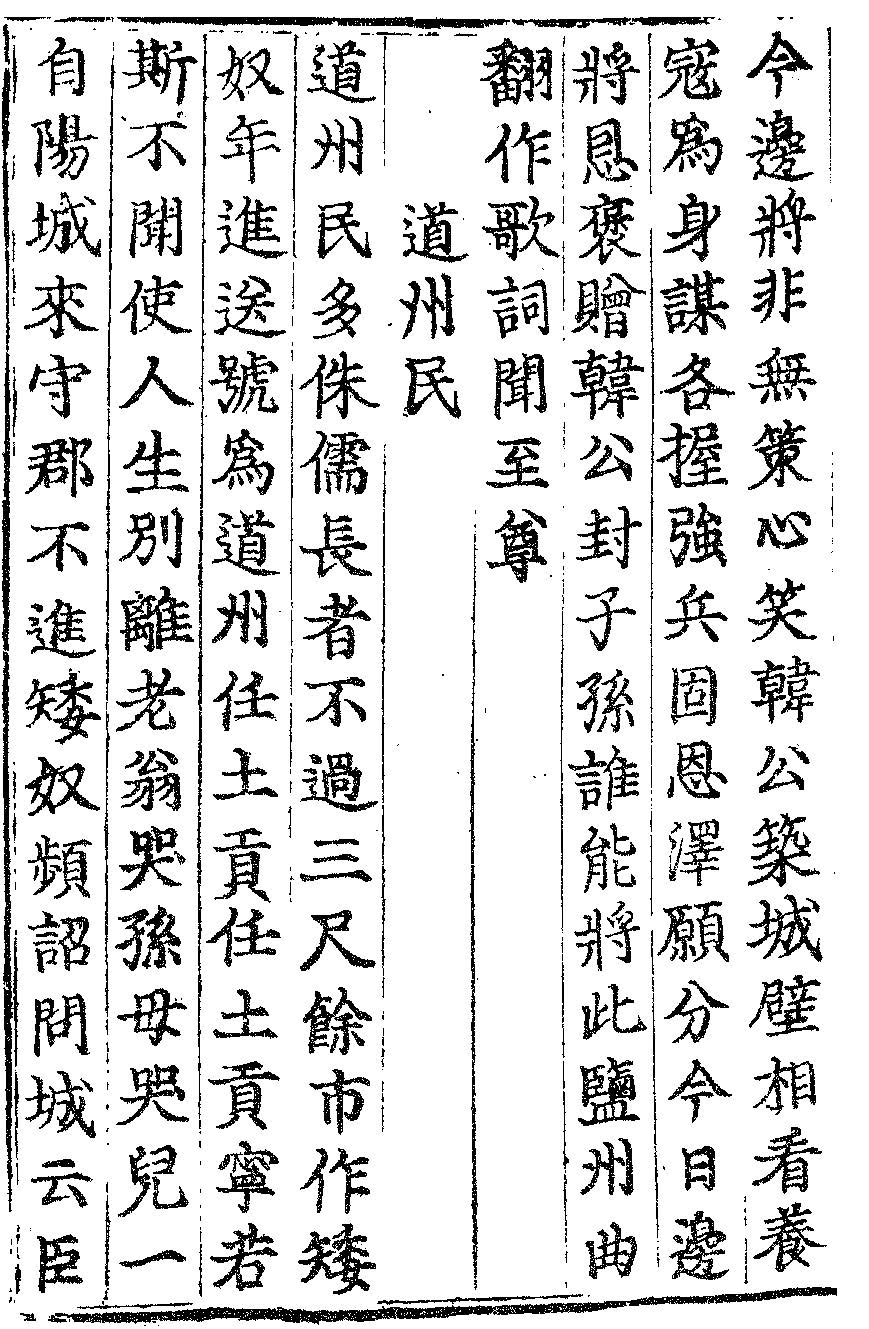 今邊將非無策心笑韓公築城壁相看養
寇爲身謀各握強兵固恩澤願分今日邊
將恩褒贈韓公封子孫誰能將此鹽州曲
翻作歌詞聞至尊
道州民
道州民多侏儒長者不過三尺餘市作矮
奴年進送號爲道州任土貢任土貢寧若
斯不聞使人生別離老翁哭孫母哭兒一
自陽城來守郡不進矮奴頻詔問城云臣